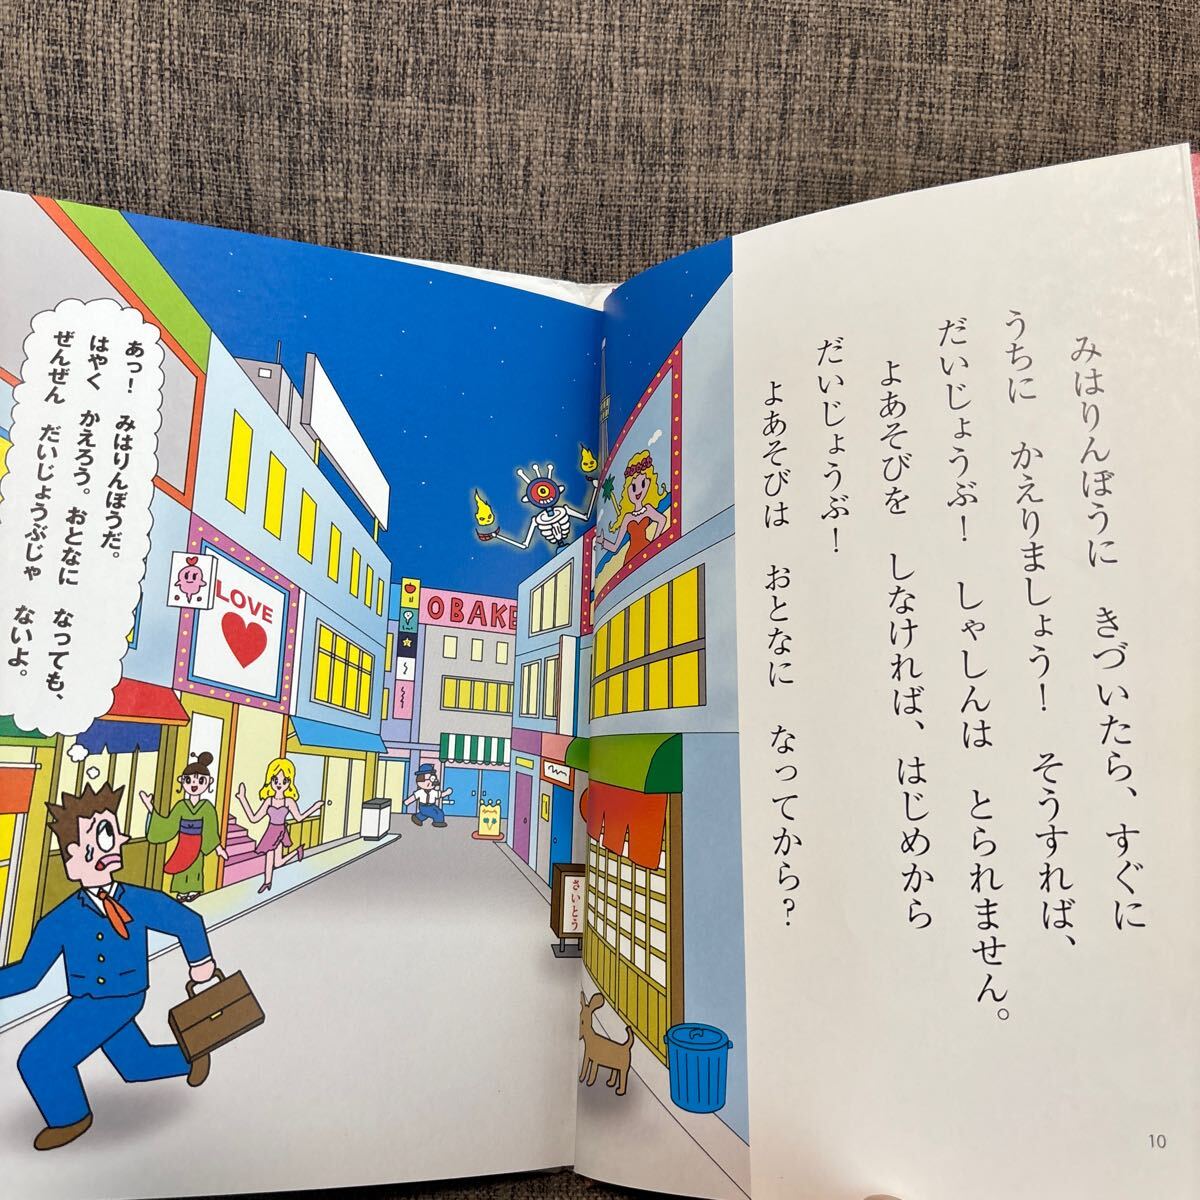 みはりんぼうに きづいたら、すぐに
うちに かえりましょう! そうすれば、
だいじょうぶ! しゃしんは とられません。
よあそびを しなければ、はじめから
だいじょうぶ!
よあそびは おとなに なってから?
10
あっ! みはりんぼうだ。
はやく かえろう。おとなに なっても、
ぜんぜん だいじょうぶじゃ ないよ。
LOVE
OBAKE
さいとう